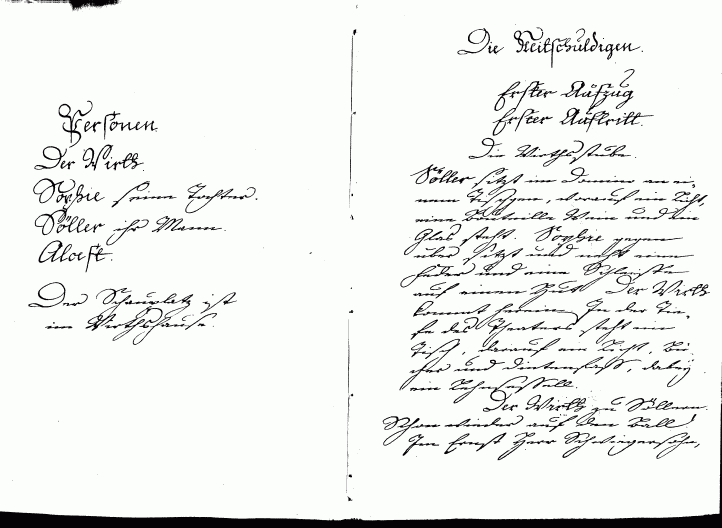 Personen.
Der Wirth.
Sophie seine Tochter.
Söller ihr Mann.
Alcest.
Der Schauplatz ist
im Wirthshause.
Die Mitschuldigen.
Erster Aufzug
Erster Auftritt.
Die Wirthsstube.
Söller sitzt im Domino an ei-
nem Tischgen, worauf ein Licht,
eine Bouteille Wein und ein
Glas steht. Sophie gegen
über, sitzt und neht eine
Feder und eine Schleiffe
auf einen Hut. Der Wirth
kommt herein. In der Tie-
fe des Theaters steht ein
Tisch, darauf ein Licht, Bü
cher und Dintenfass, dabey
ein Lehnsessell.
Der Wirth zu Söllern.
Schon wieder auf den Ball!
Im Ernst Herr Schwiegersohn,